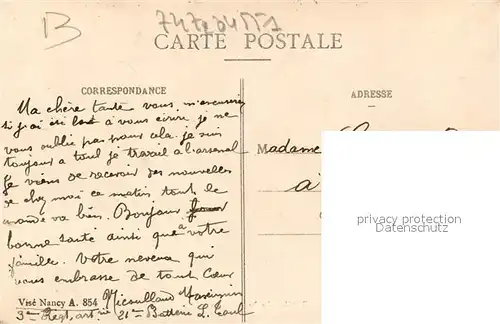 B
747204551
CARTE POSTALE
CORRESPONDANCE
ADRESSE
Ma chère tante vous m'excuserez
si j'ai été à vous écrire je ne
vous oublie pas pour cela je suis
toujour a toul je travail à l'arsenal
Je viens de recevoir des nouvelles
de chez moi ce matin tout le
monde va bien. Bonjour
bonne santé ainsi que a votre
famille. Votre neveux qui
vous embrasse de tout Cœur
Madame
à
privacy protection
Datenschutz
Visé Nancy A. 854
3ème Regt, art rie 21me Batterie Toul